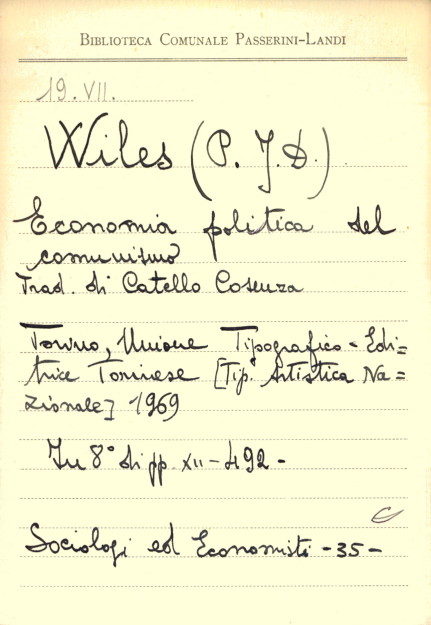 BIBLIOTECA COMUNALE PASSERINI-LANDI
19. VII.
Wiles (P. J. D.)
Economia politica del
comunismo
Trad. di Catello Cosenza
Torino, Unione Tipografico-Edi=
trice Torinese [Tip. Artistica Na=
zionale] 1969
In 8° di pp. XII-492-
Sociologi ed Economisti -35-